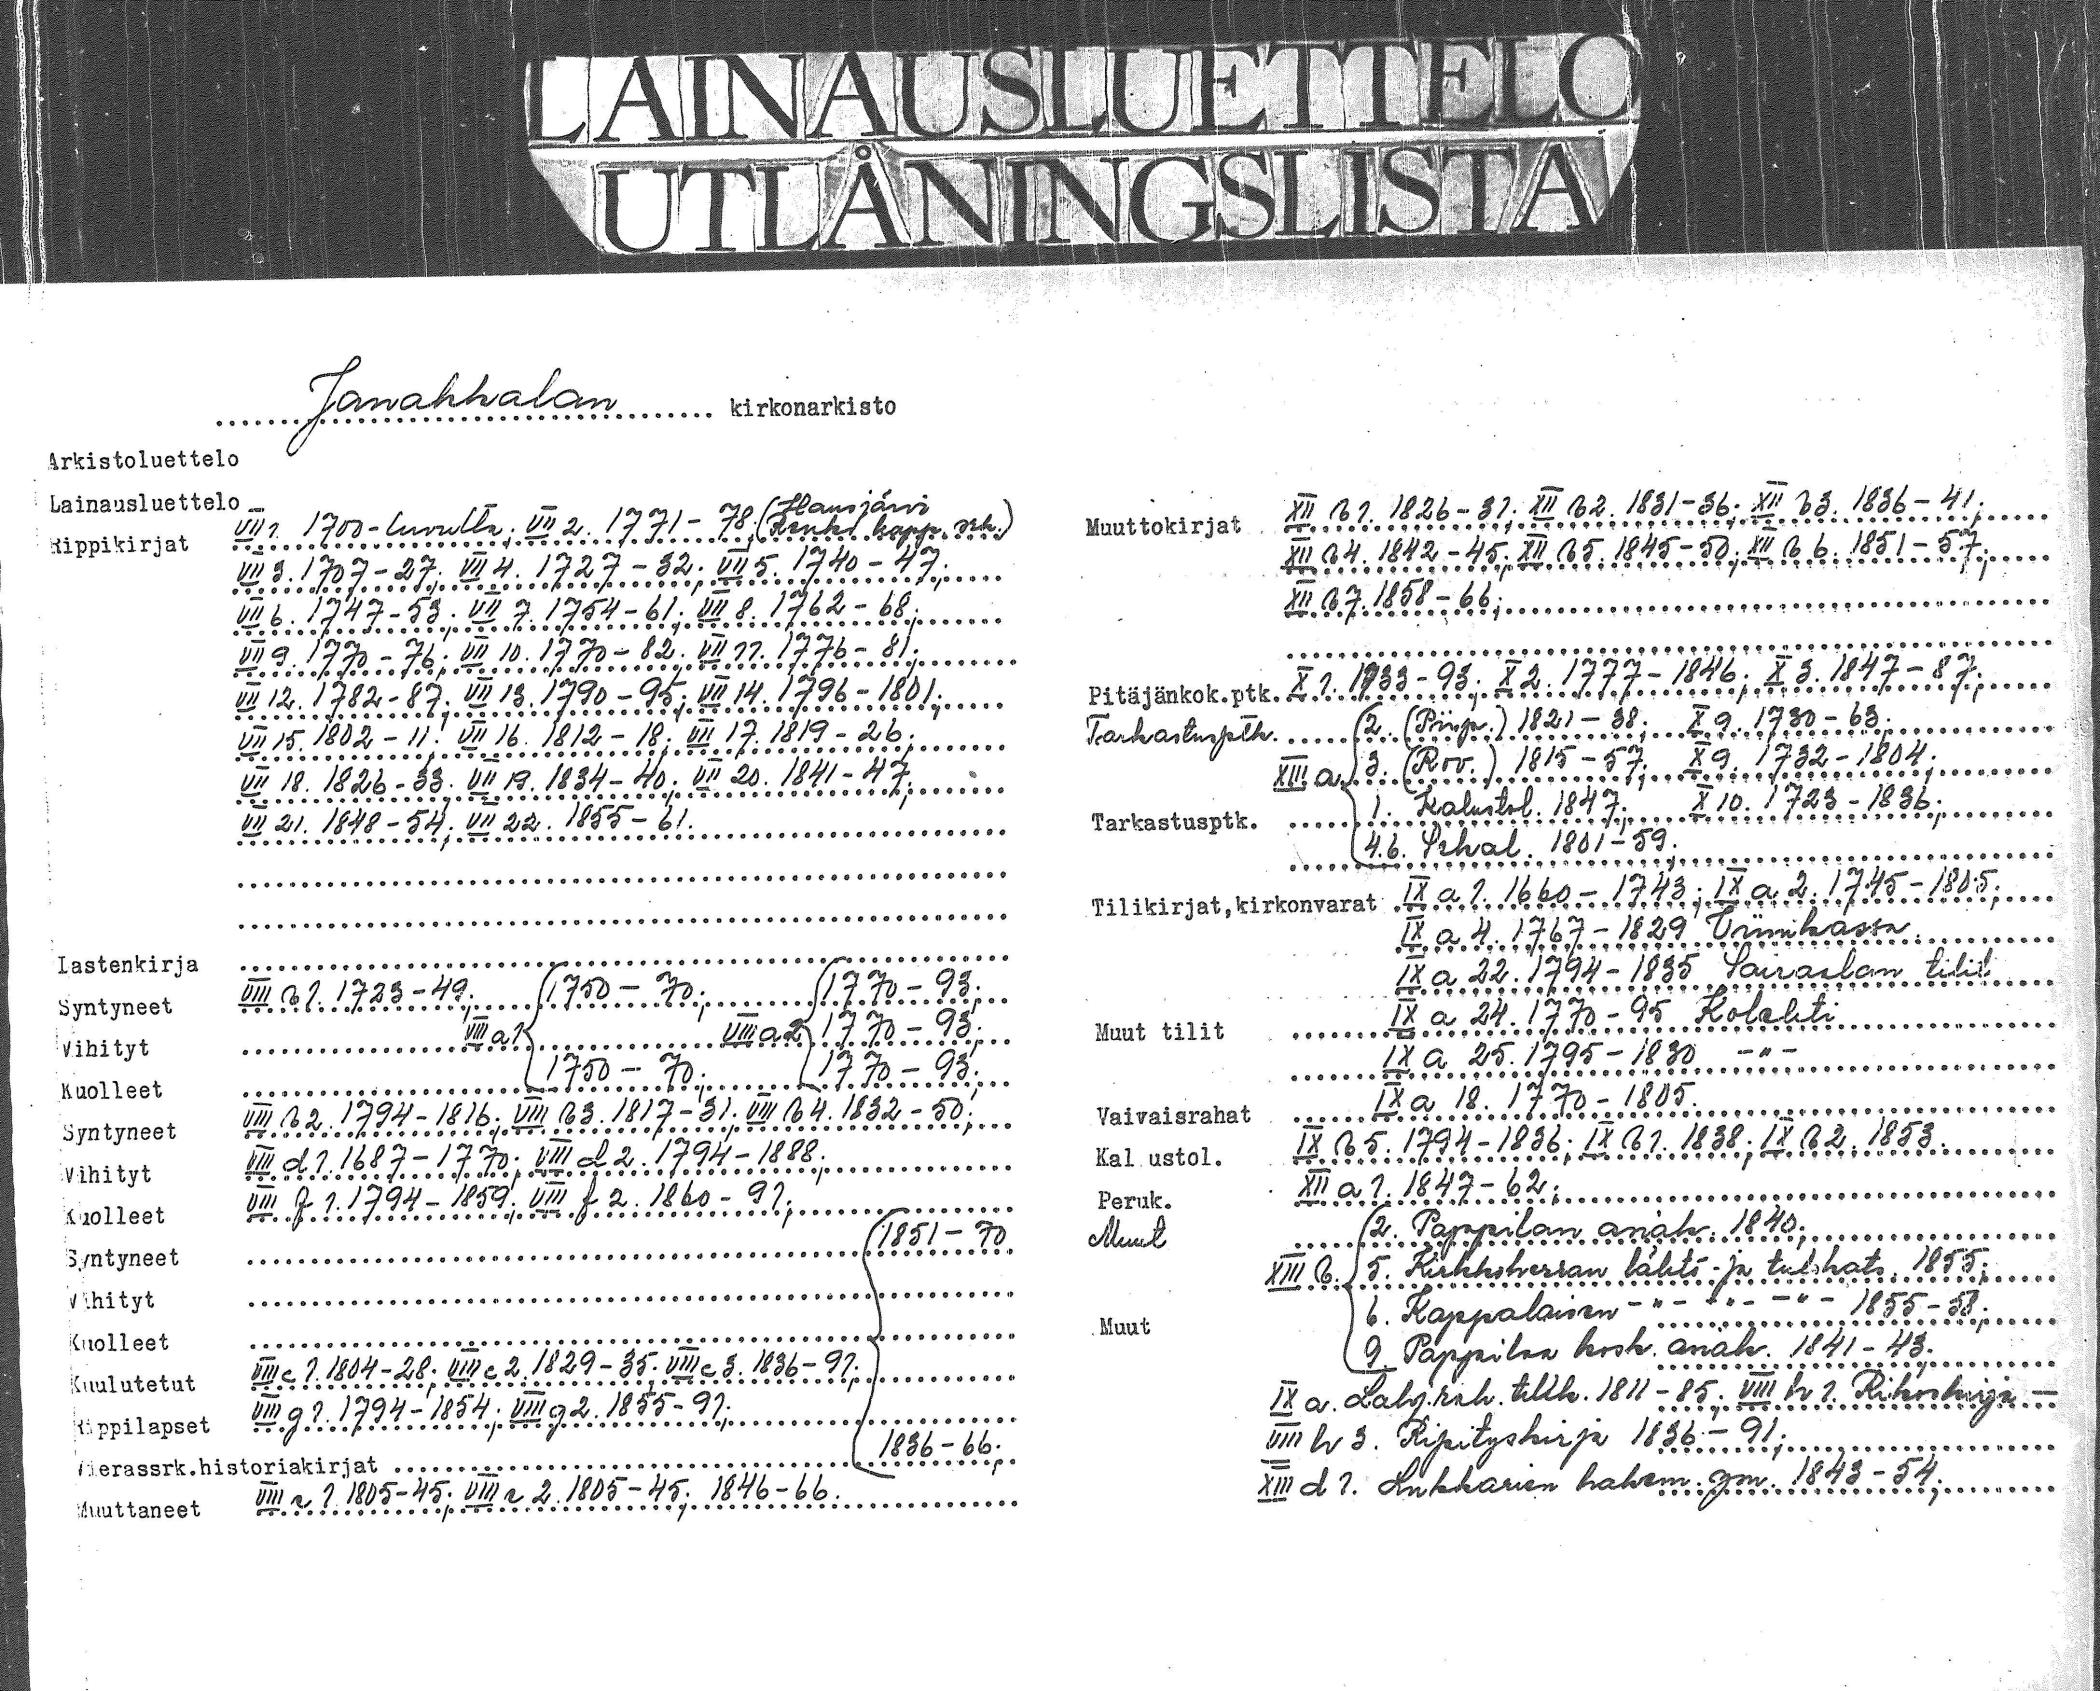 LAINAUSLUETTELO
UTLÅNINGSLISTA
Janakkalan kirkonarkisto
Arkistoluettelo
Lainausluettelo
Rippikirjat VII 1. 1700-luvulta; VII 2. 1771-78; (Hausjärvi kapp. srk.)
VII 3. 1707-27; VII 4. 1727-32; VII 5. 1740-47;
VII 6. 1747-53; VII 7. 1754-61; VII 8. 1762-68;
VII 9. 1770-76; VII 10. 1770-82; VII 11. 1776-81;
VII 12. 1782-87; VII 13. 1790-95; VII 14. 1796-1801;
VII 15. 1802-11; VII 16. 1812-18; VII 17. 1819-26;
VII 18. 1826-33; VII 19. 1834-40; VII 20. 1841-47;
VII 21. 1848-54; VII 22. 1855-61.
Lastenkirja
Syntyneet VIII b 1. 1723-49; 1750-70; 1770-93;
Vihityt VIII a 1 VIII a 2 1770-93;
Kuolleet 1750-70; 1770-93;
Syntyneet VIII b 2. 1794-1816; VIII b 3. 1817-31; VIII b 4. 1832-50;
Vihityt VIII d 1. 1687-1770; VIII d 2. 1794-1888;
Kuolleet VIII f 1. 1794-1859; VIII f 2. 1860-91;
Syntyneet 1851-70
Vihityt
Kuolleet
Kuulutetut VIII c 1. 1804-28; VIII c 2. 1829-35; VIII c 3. 1836-91;
Rippilapset VIII g 1. 1794-1854; VIII g 2. 1855-91;
Vierassrk.historiakirjat 1836-66;
Muuttaneet VIII e 1. 1805-45; VIII e 2. 1805-45; 1846-66.
Muuttokirjat XII b 1. 1826-31; XII b 2. 1831-36; XII b 3. 1836-41;
XII b 4. 1842-45; XII b 5. 1845-50; XII b 6. 1851-57;
XII b 7. 1858-66;
Pitäjänkok.ptk. X 1. 1733-93; X 2. 1777-1846; X 3. 1847-87;
Tarkastusptk. 2. (Piisp.) 1821-38; X 9. 1730-63;
XIII a 3. (Rov.) 1815-57; X 9. 1732-1804;
Tarkastusptk. 1. Kalustol. 1847; X 10. 1723-1836;
4.6. Srkal. 1801-59.
Tilikirjat,kirkonvarat IX a 1. 1660-1743; IX a 2. 1745-1805;
IX a 4. 1767-1829 Viinikassa
IX a 22. 1794-1835 Sairaalan tilit
Muut tilit IX a 24. 1770-95 Kolehti
IX a 25. 1795-1830 -"-
Vaivaisrahat IX a 18. 1770-1805.
Kal ustol. IX b 5. 1794-1836; IX b 1. 1838; IX b 2. 1853.
Peruk. XII a 1. 1847-62;
Muut 2. Pappilan asiak. 1840;
XIII b. 5. Kirkkoherran lähtö- ja tulokats. 1855;
Muut 6. Kappalaisen -"- -"- -"- 1855-58;
9. Pappilaa kosk. asiak. 1841-43.
IX a. Lahj.rah. tilik. 1811-85; VIII h 1. Rikoskirja —
VIII h 3. Ripityskirja 1836-91;
XIII d 1. Lukkarien hakem. ym. 1843-54;